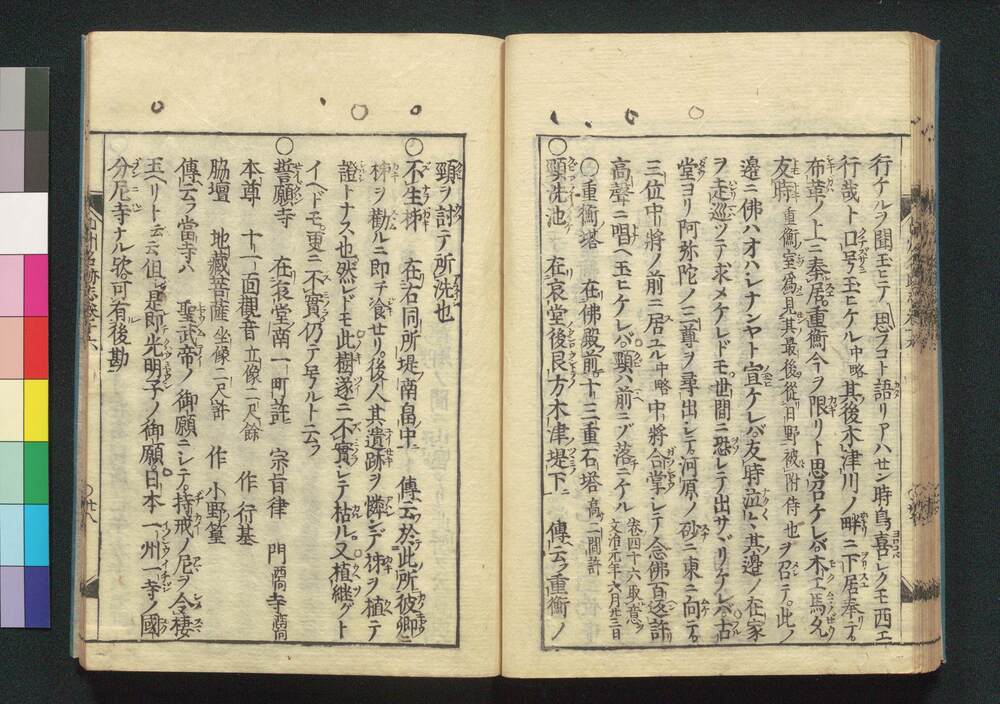 行ケルヲ聞玉ヒテ思フコト語リアハセン時鳥喜レクモ西エ
行哉ト口号玉ヒケル中略其後木津川ノ畔ニ下居奉テ
布革ノ上ニ奉居重衡今ヲ限リト思召ケレバ木工馬允
友時重衡室爲見其最後従日野被附侍也ヲ召テ此ノ
邉ニ佛ハオハシナンヤト宣ケレバ友時泣々其邉ノ在家
ヲ走巡ツテ求メケレドモ世間ニ恐レテ出サヾリケレバ古
堂ヨリ阿弥陀ノ三尊ヲ尋出シテ河原ノ砂ニ東ニ向テ
三位中將ノ前ニ居ユル中略中將合掌シテ念佛百返許
高聲ニ唱ヘ玉ヒケレバ頸ハ前ニゾ落ニケル巻四十六取意文治元年六月廿三日
〇重衡塔 在佛殿前十三重石塔高二間許
〇頸洗池 在哀堂後艮方木津堤下 傳云フ重衡ノ
頸ヲ討テ所洗也
〇不生柹 在右同所堤南畠中 傳云於此所彼卿ニ
柹ヲ勸ルニ即チ食セリ後人其遺跡ヲ憐デ柹ヲ植テ
證トナス也然レドモ此樹遂ニ不實シテ枯ル又植継グト
イヘドモ更ニ不實仍テ号ルト云フ
〇誓願寺 在哀堂南一町許 宗旨律 門西向寺南向
本尊 十一面觀音立像二尺餘 作行基
脇壇 地藏菩薩坐像二尺許 作小野篁
傳云フ當寺ハ 聖武帝ノ御願ニシテ持戒ノ尼ヲ令棲
玉ヘリト云云但是即光明子ノ御願日本一州一寺ノ國
分尼寺ナル歟可有後勘
山州名跡志巻十六
〇廿八